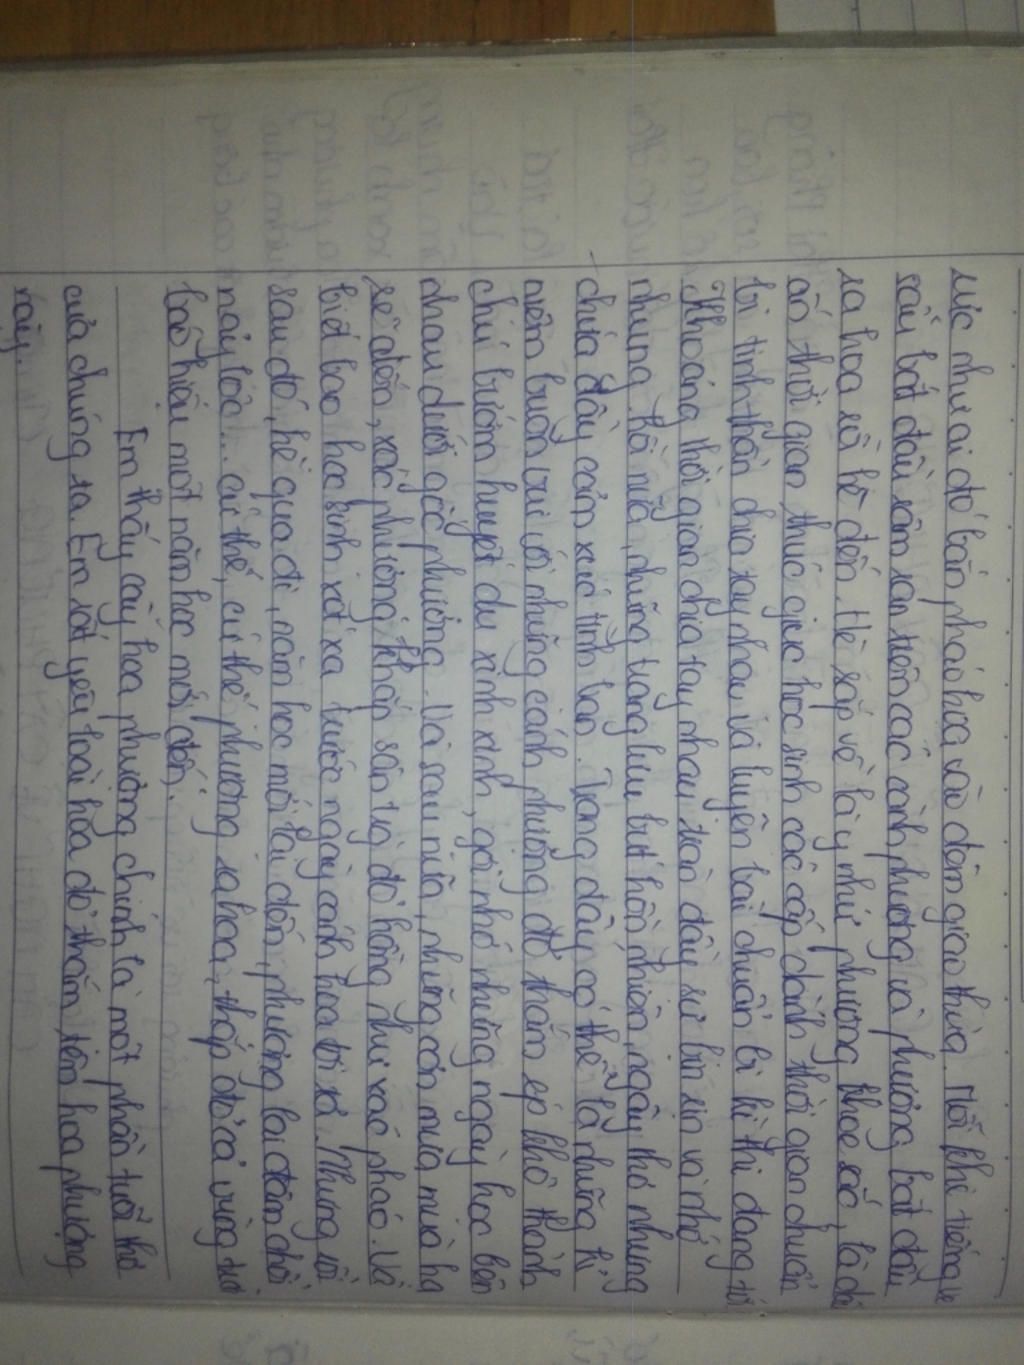 rực như ai đó bắn pháo hoa vào đêm giao thừa. Mỗi khi tiếng ve
sầu bắt đầu râm ran trên các cành phượng và phượng bắt đầu
ra hoa là hè đến. Hè sắp về là y như phượng khoe sắc, là
ấn thời gian, thúc giục học sinh các cấp dành thời gian chuẩn
bị tinh thần chia tay nhau và luyện bài chuẩn bị kì thi đang tới
Khoảng thời gian chia tay nhau tràn đầy sự bịn rịn và nhớ
nhung. Rồi nữa, những trang lưu bút hồn nhiên, ngây thơ nhưng
chứa đầy cảm xúc tình bạn. Trong đấy có thể là những kỉ
niệm buồn vui với những cánh phượng đỏ thắm ép khô thành
chú bướm huyết dụ xinh xinh, gợi nhớ những ngày học bên
nhau dưới gốc phượng. Và sau nữa, những cơn mưa mùa hạ
sẽ đến, xác phượng khắp sân trường đỏ hồng như xác pháo. Và
biết bao học sinh xót xa trước ngày cánh hoa rơi rớt. Nhưng rồi
sau đó, hè qua đi, năm học mới lại đến, phượng lại đâm chồi
nảy lộc... cứ thế, cứ thế phượng ra hoa, thắp đỏ cả vùng trời
báo hiệu một năm học mới đến.
Em thấy cây hoa phượng chính là một phần tuổi thơ
của chúng ta. Em rất yêu loài hoa đỏ thắm, tên hoa phượng
này.